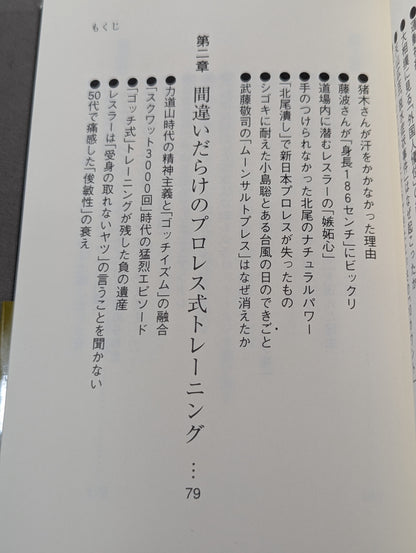 もくじ
●猪木さんが汗をかかなかった理由
●藤波さんが「身長186センチ」にビックリ
●道場内に潜むレスラーの「嫉妬心」
●手のつけられなかった北尾のナチュラルパワー
●「北尾潰し」で新日本プロレスが失ったもの
●シゴキに耐えた小島聡とある台風の日のできごと
●武藤敬司の「ムーンサルトプレス」はなぜ消えたか
第二章 間違いだらけのプロレス式トレーニング … 79
●力道山時代の精神主義と「ゴッチイズム」の融合
●「スクワット3000回」時代の猛烈エピソード
●「ゴッチ式」トレーニングが残した負の遺産
●レスラーは「受身の取れないヤツ」の言うことを聞かない
●50代で痛感した「俊敏性」の衰え